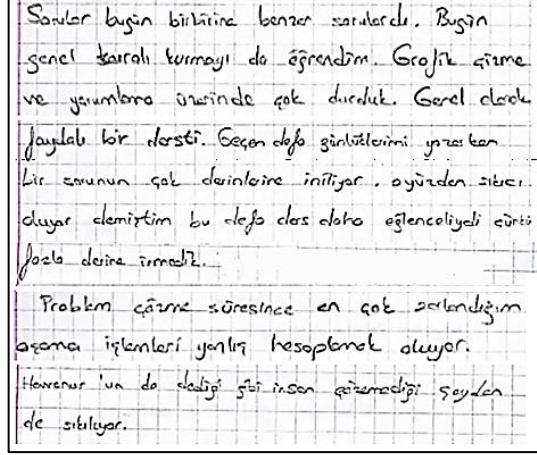 Sorular bugün birbirine benzer sorulardı. Bugün
genel kuralı kurmayı da öğrendim. Grafik çizme
ve yorumlama üzerinde çok durduk. Genel olarak
faydalı bir dersti. Geçen defa günlüklerimi yazarken
bir sorunun çok derinlerine iniliyor, oyüzden sıkıcı
oluyor demiştim bu defa ders daha eğlenceliydi çünkü
fazla derine inmedik.
Problem çözme süresince en çok zorlandığım
aşama işlemleri yanlış hesaplamak oluyor.
Havvanur'un da dediği gibi insan çözemediği şeyden
de sıkılıyor.